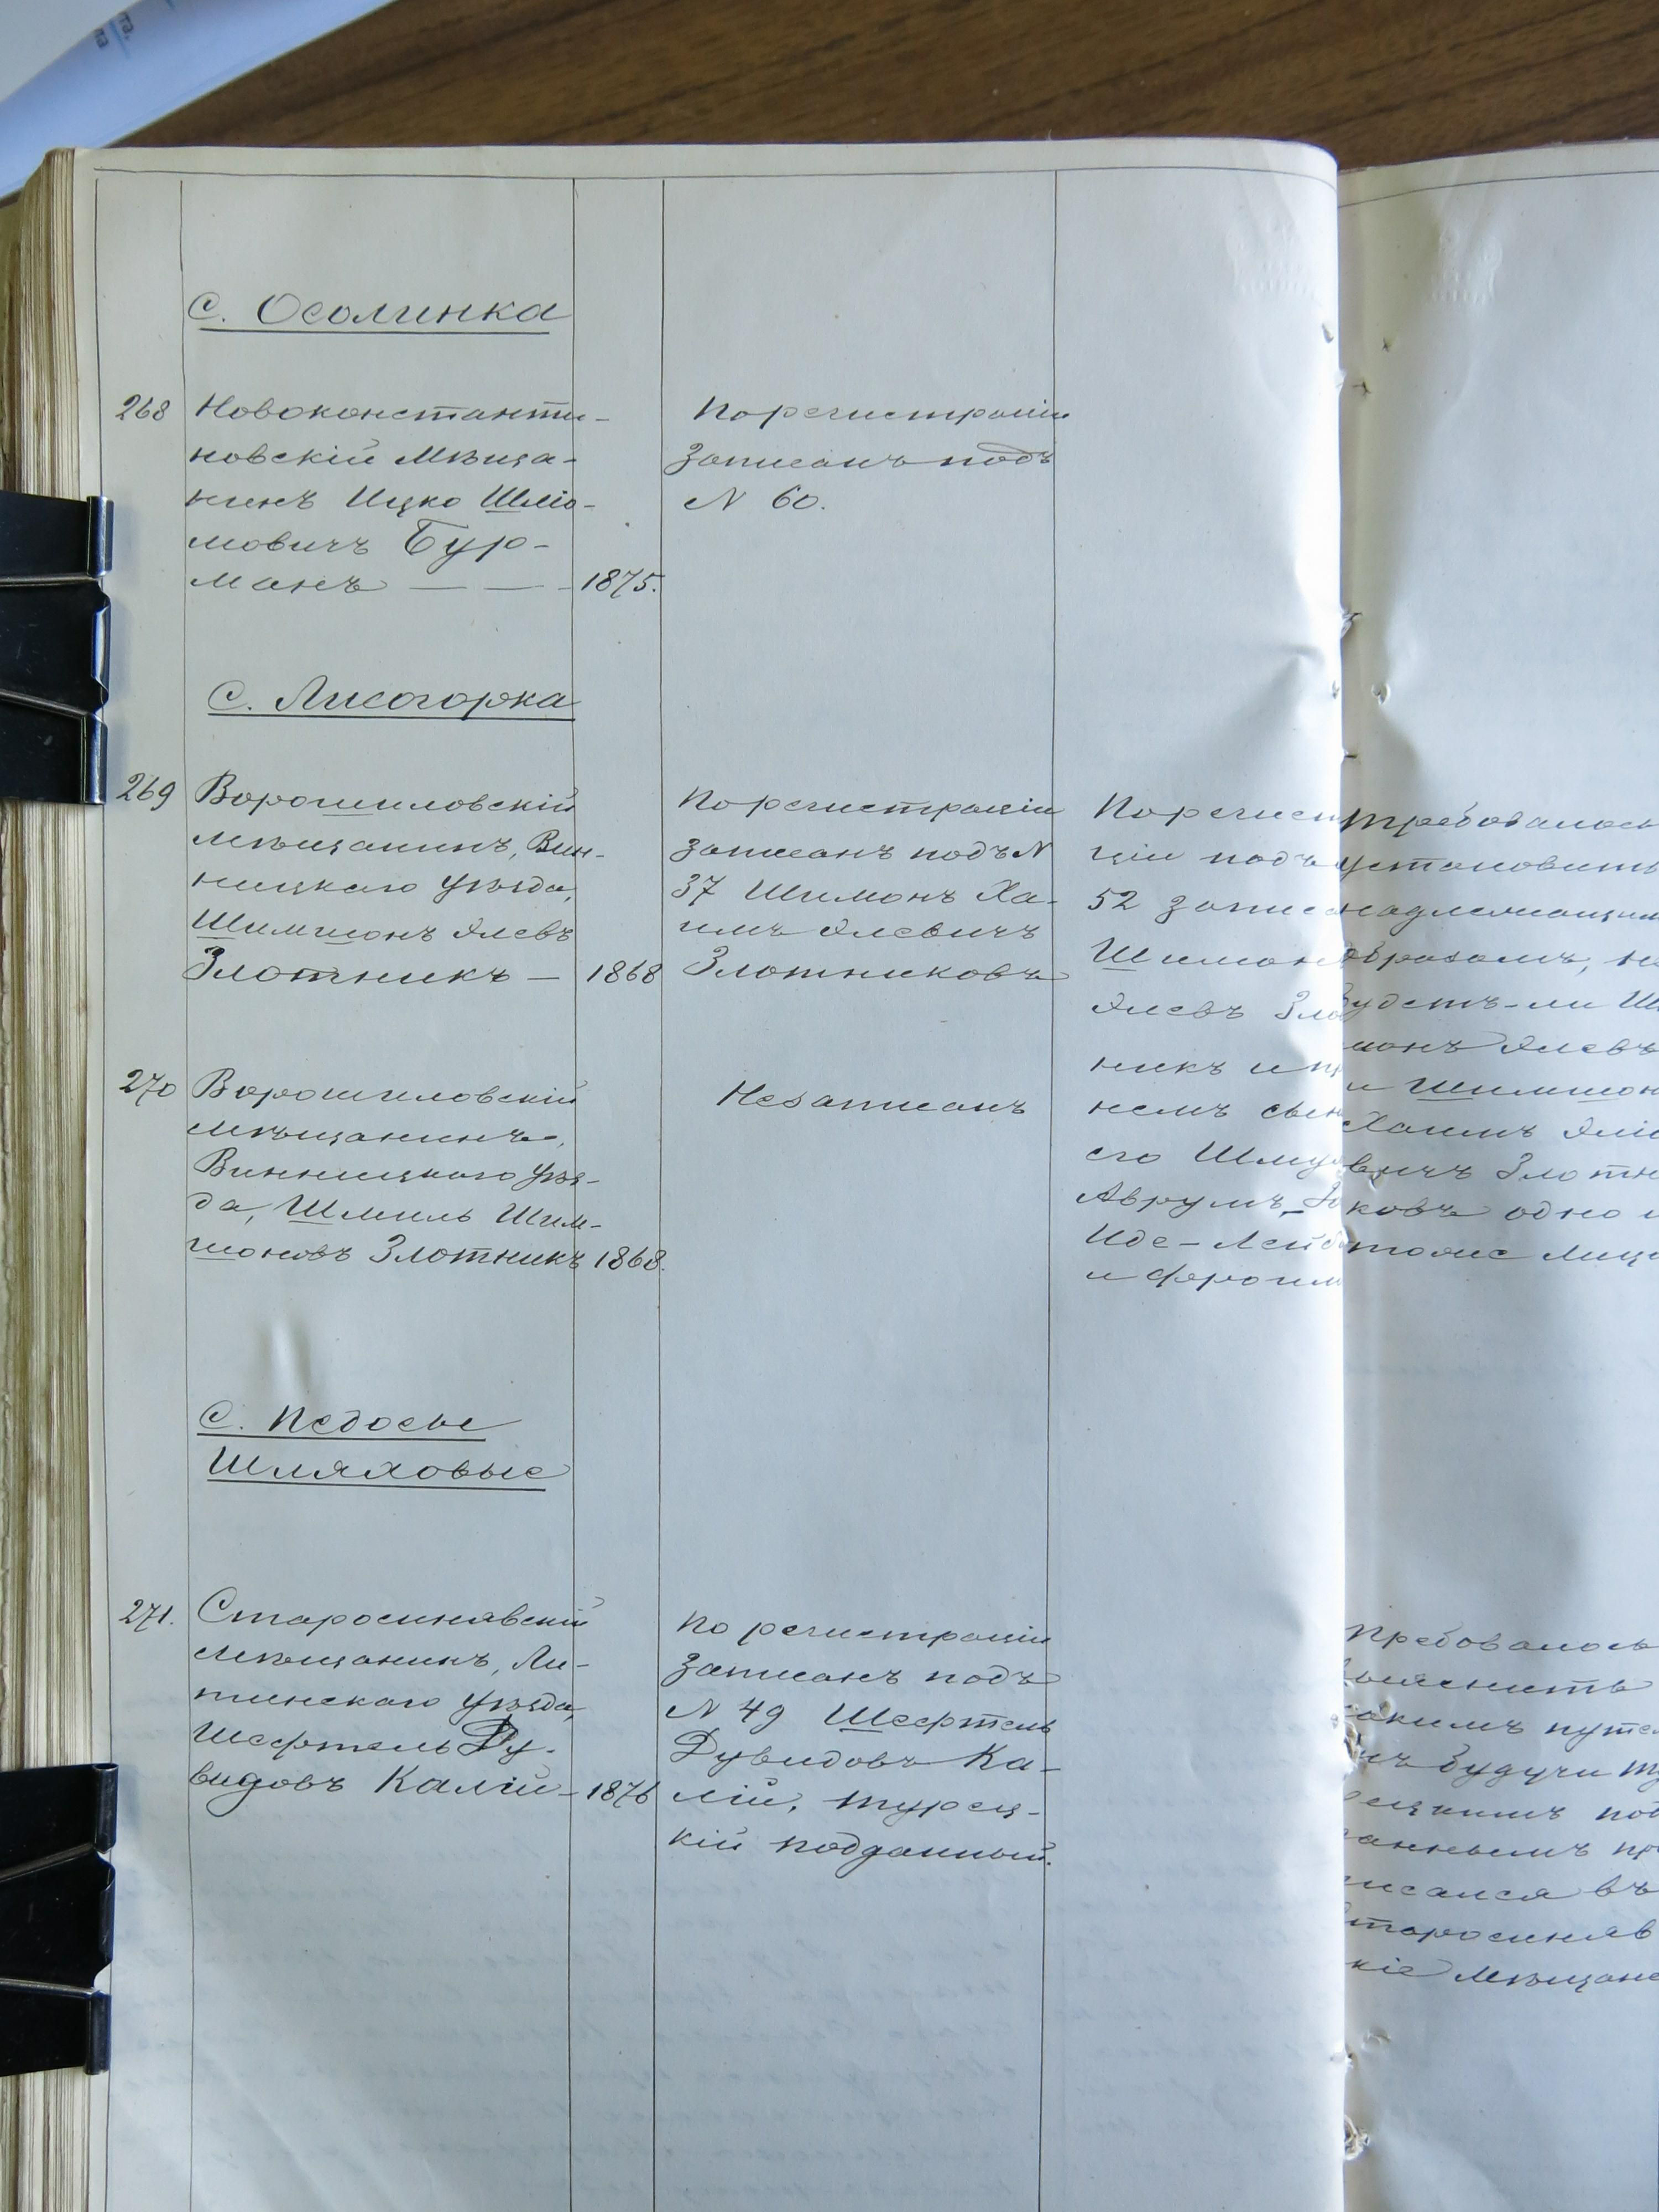 С. Осолинка
268 Новоконстанти-
новскій мѣща-
нинъ Ицко Шлiо-
мовичъ Бур-
манъ — — 1875.
По регистраціи
записанъ подъ
N 60.
С. Лисогорка
269 Ворошиловскій
мѣщанинъ, Вин-
ницкаго уѣзда,
Шимшонъ Элевъ
Злотникъ — 1868
По регистраціи
записанъ подъ N
37 Шимонъ Ха-
имъ Элевичъ
Злотниковъ
По регист
ціи подъ
52 записа
Шимон
Элевъ Зло
никъ и п
немъ сын
его Шму
Аврумъ-
Иде-Лейб
и Фроим
Требовалось
установить
надлежащим
образомъ, не
будетъ-ли Ш
монъ Элевъ
и Шимшон
Хаимъ Эліе
вичъ Злотни
ковъ одно и
тоже лицо
270 Ворошиловскій
мѣщанинъ,
Винницкаго уѣз-
да, Шмиль Шим-
шоновъ Злотникъ 1868.
Незаписанъ
С. Педосье
Шляховые
271. Старосинявскій
мѣщанинъ, Ли-
тинскаго уѣзда,
Шефтель Ду-
видовъ Калій - 1876
По регистраціи
записанъ подъ
N 49 Шефтель
Дувидовъ Ка-
лій, турец-
кій подданный.
Требовалось
выяснить
какимъ путем
онъ будучи ту
рецкимъ под
даннымъ пр
писался въ
старосиняв
кіе мѣщане